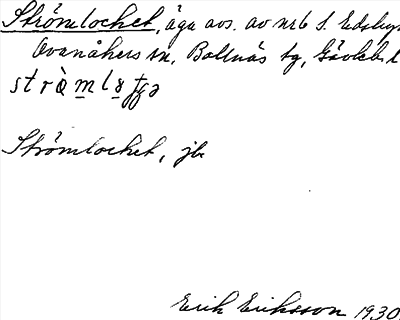 Strömlocket, äga avs. av nr 6 S. Edsbyn
Ovanåkers sn, Bollnäs tg, Gävleb. l
Strömlocket, jb
Erik Eriksson 1930.